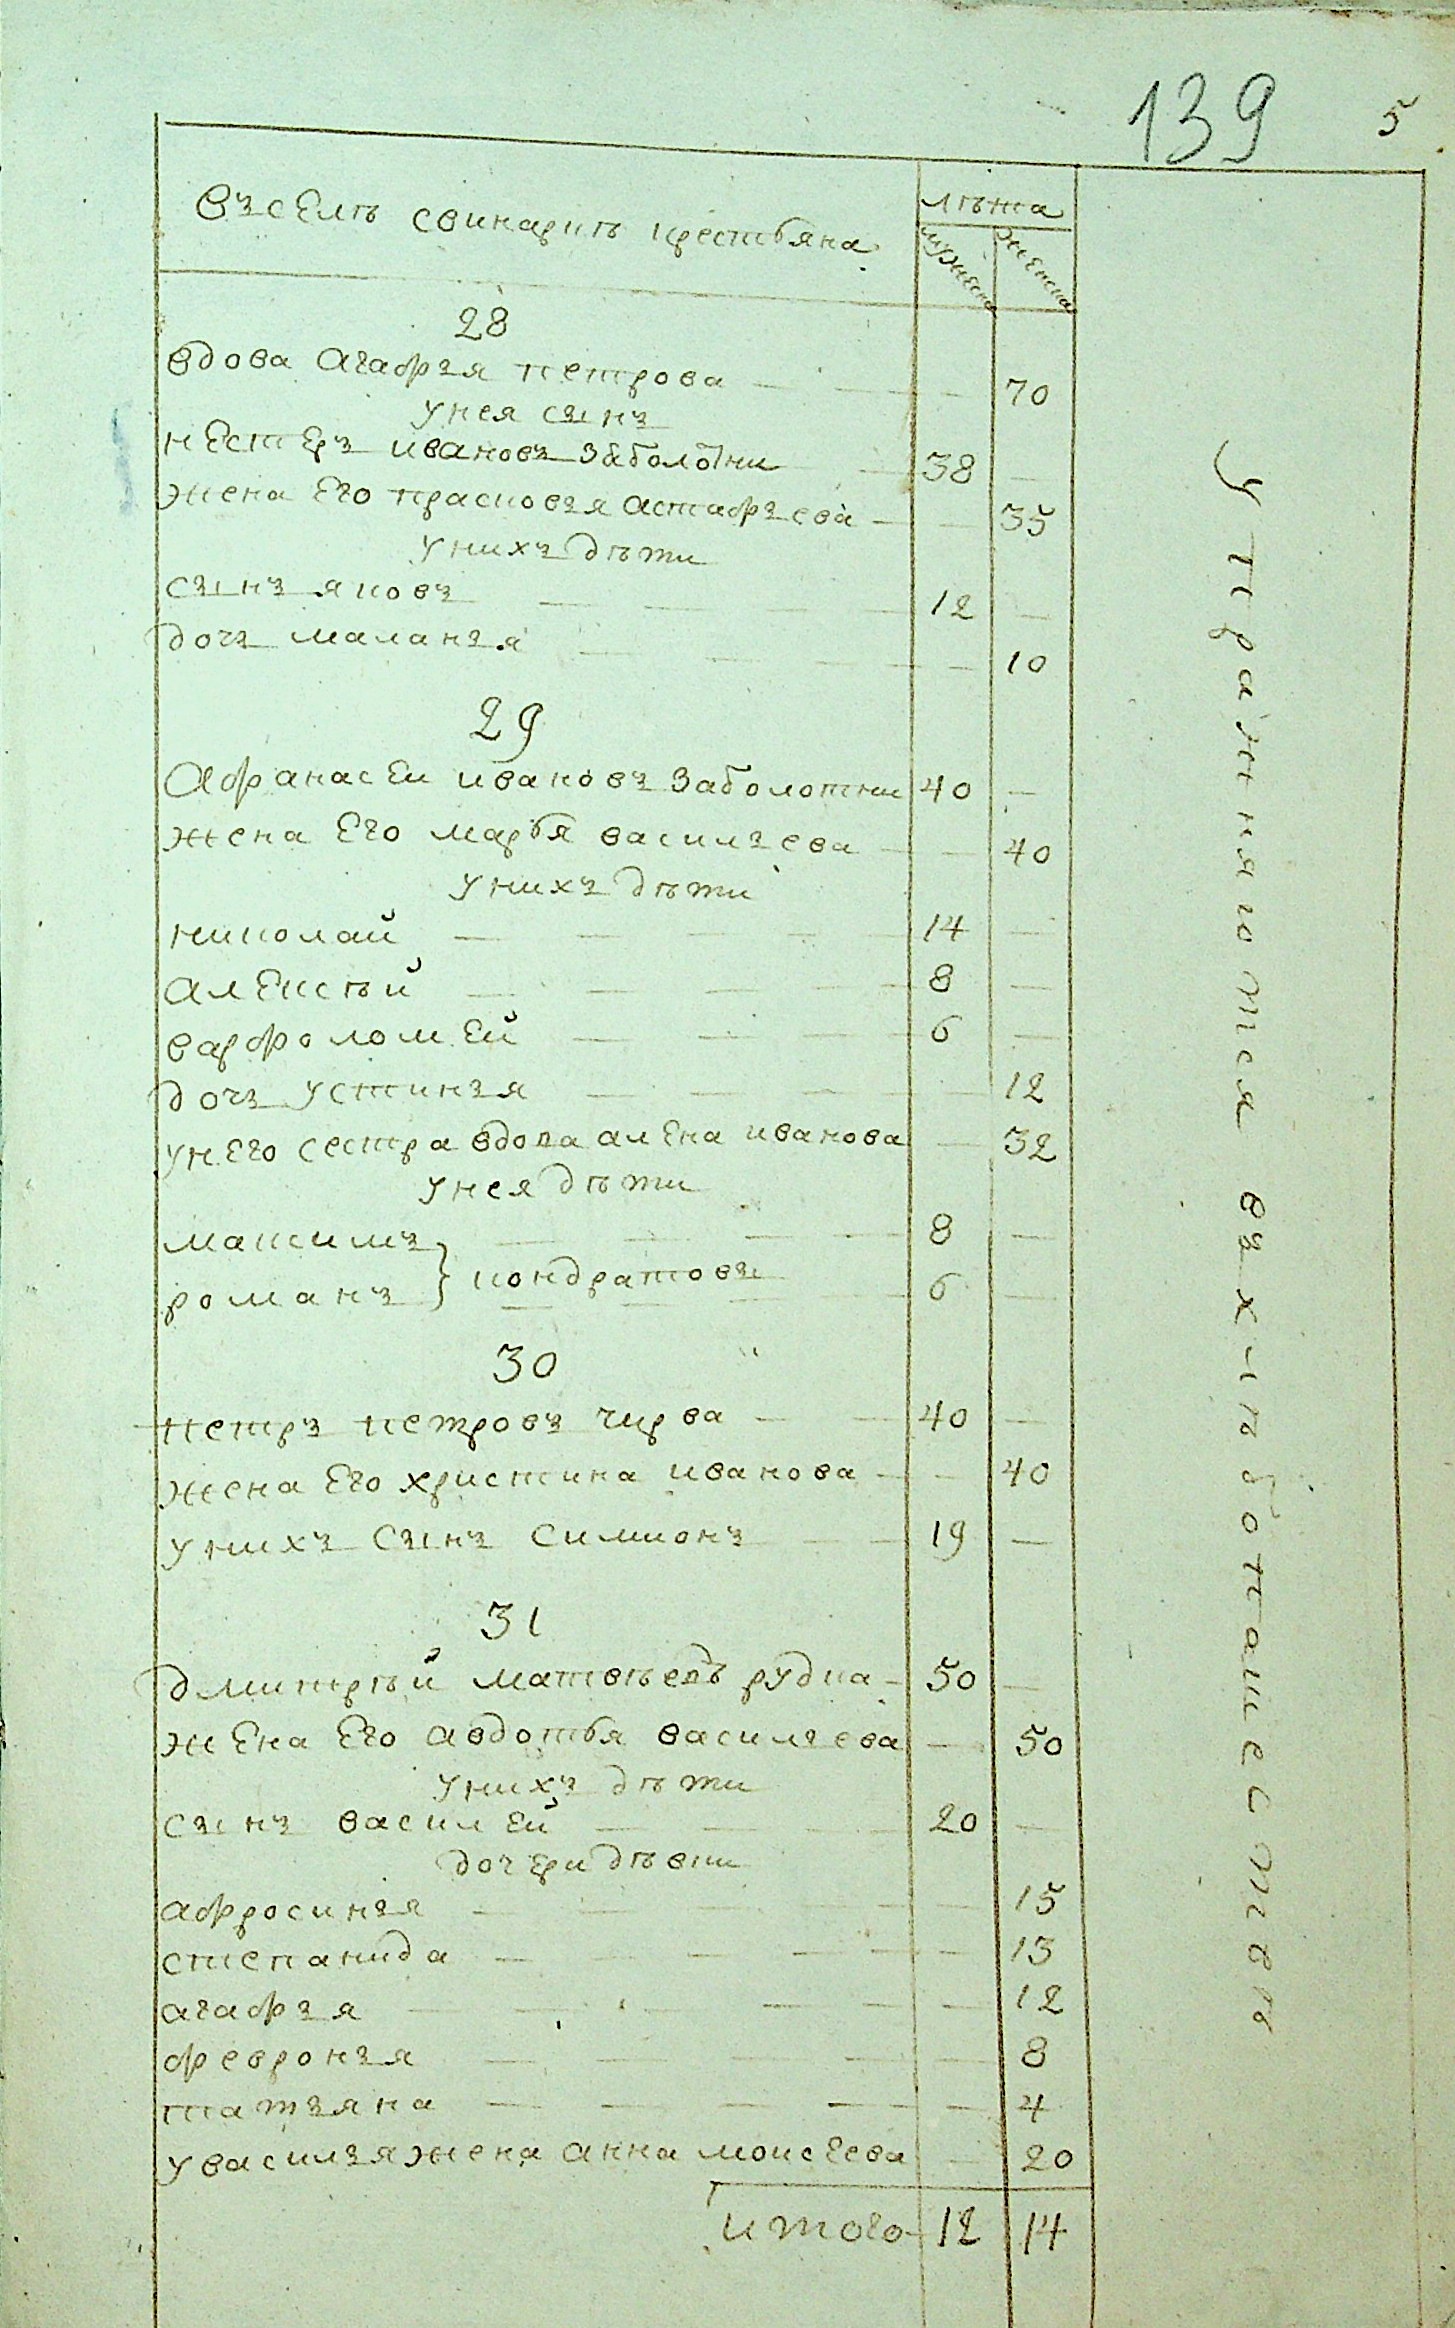 139 5
Въ селѣ Свинарнѣ крестьяна
лѣта
мужеска женска
28
вдова Агафья петрова — 70
у нея сынъ
нестеръ ивановъ Заболотни 38 —
жена Его прасковья Астафьева — 35
у нихъ дѣти
сынъ яковъ 12 —
дочь маланья — 10
29
Афанасеи ивановъ Заболотни 40 —
жена Его марья васильева — 40
у нихъ дѣти
николай 14 —
алексѣй 8 —
варфоломей 6 —
дочь устинья — 12
у него сестра вдова алена иванова — 32
у нея дѣти
максимъ 8 —
романъ } кондратовы 6 —
30
петръ петровъ чирва 40 —
жена Его христина иванова — 40
у нихъ сынъ Симионъ 19 —
31
дмитрѣй матвѣевъ рудка 50 —
жена Его авдотья васильева — 50
у нихъ дѣти
сынъ василей 20 —
дочери дѣвки
афросинья — 15
степанида — 13
агафья — 12
февронья — 8
татьяна — 4
у василья жена анна моисеева — 20
итого 12 14
Упражняются въ хлѣбопашествѣ